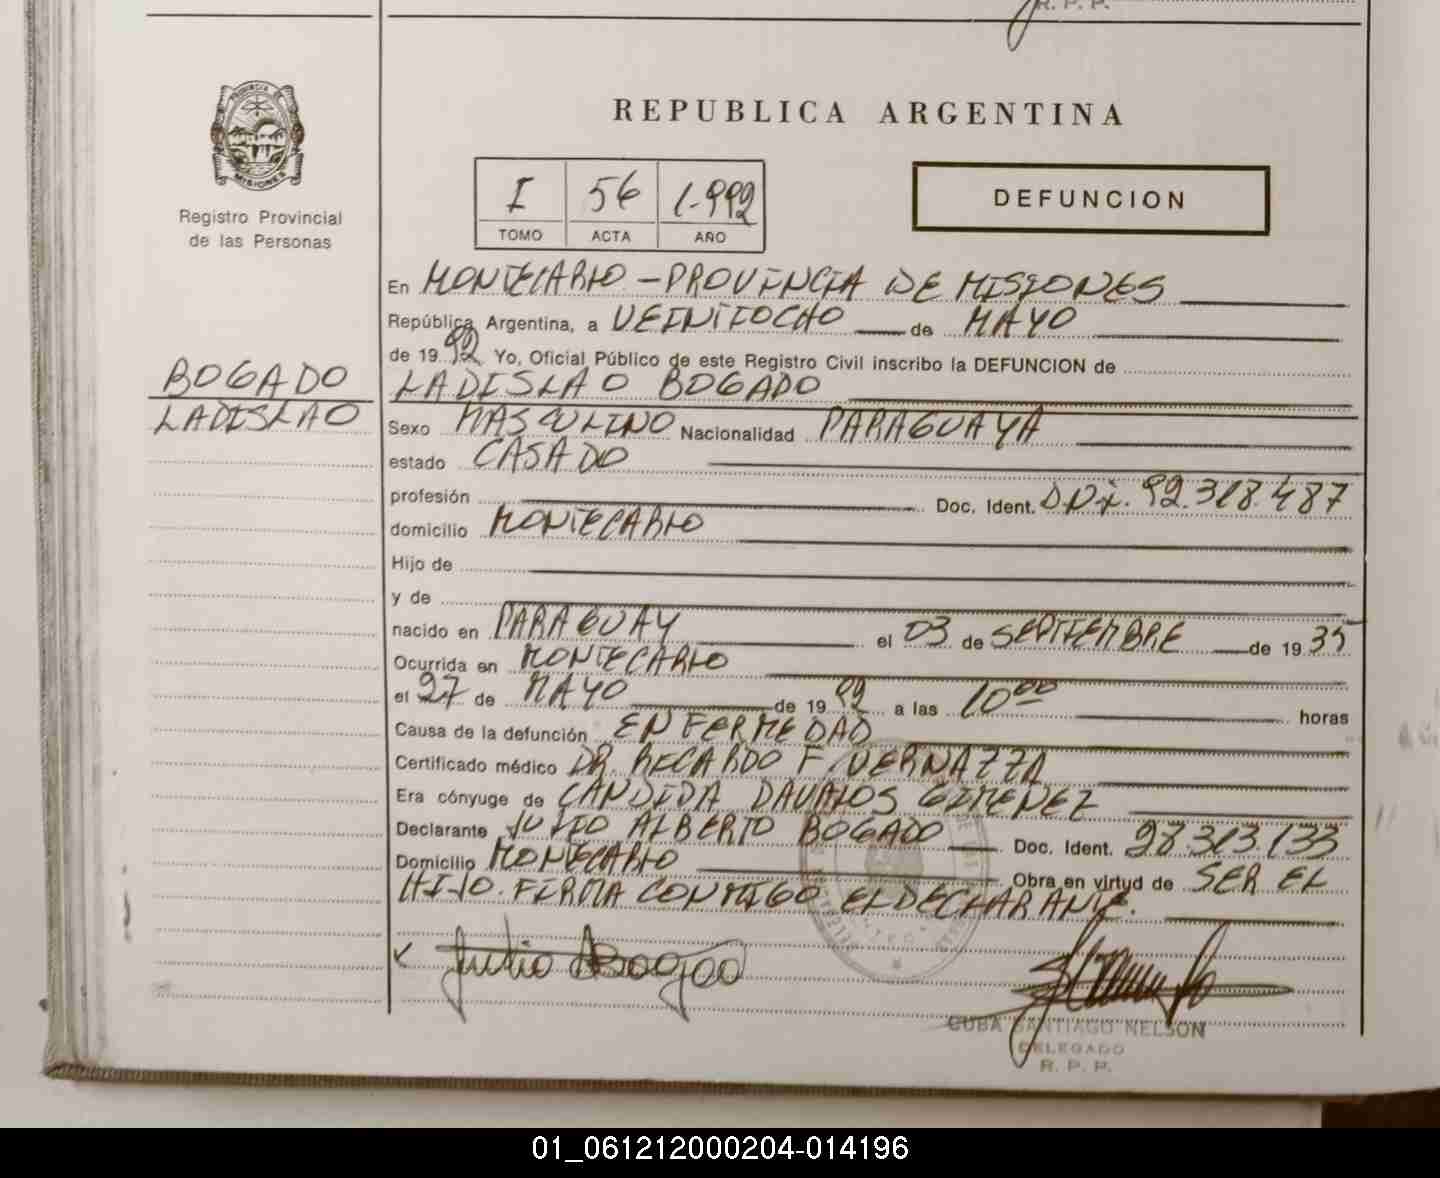 R. P. P.
PROVINCIA DE
MISIONES
Registro Provincial
de las Personas
REPUBLICA ARGENTINA
I 56 1.992
TOMO ACTA AÑO
DEFUNCION
En MONTECARLO - PROVINCIA DE MISIONES
República Argentina, a VEINTIOCHO de MAYO
de 1992 Yo, Oficial Público de este Registro Civil inscribo la DEFUNCION de
BOGADO
LADISLAO
LADISLAO BOGADO
Sexo MASCULINO Nacionalidad PARAGUAYA
estado CASADO
profesión Doc. Ident. D.N.I. 92.318.487
domicilio MONTECARLO
Hijo de
y de
nacido en PARAGUAY el 03 de SEPTIEMBRE de 1935
Ocurrida en MONTECARLO
el 27 de MAYO de 1992 a las 10⁰⁰ horas
Causa de la defunción ENFERMEDAD
Certificado médico DR. RICARDO F. VERNAZZA
Era cónyuge de CANDIDA DAVALOS GIMENEZ
Declarante JULIO ALBERTO BOGADO Doc. Ident. 28.313.133
Domicilio MONTECARLO Obra en virtud de SER EL
HIJO. FIRMA CONMIGO EL DECLARANTE.
Julio A Bogado
CUBA SANTIAGO NELSON
DELEGADO
R. P. P.
01_061212000204-014196